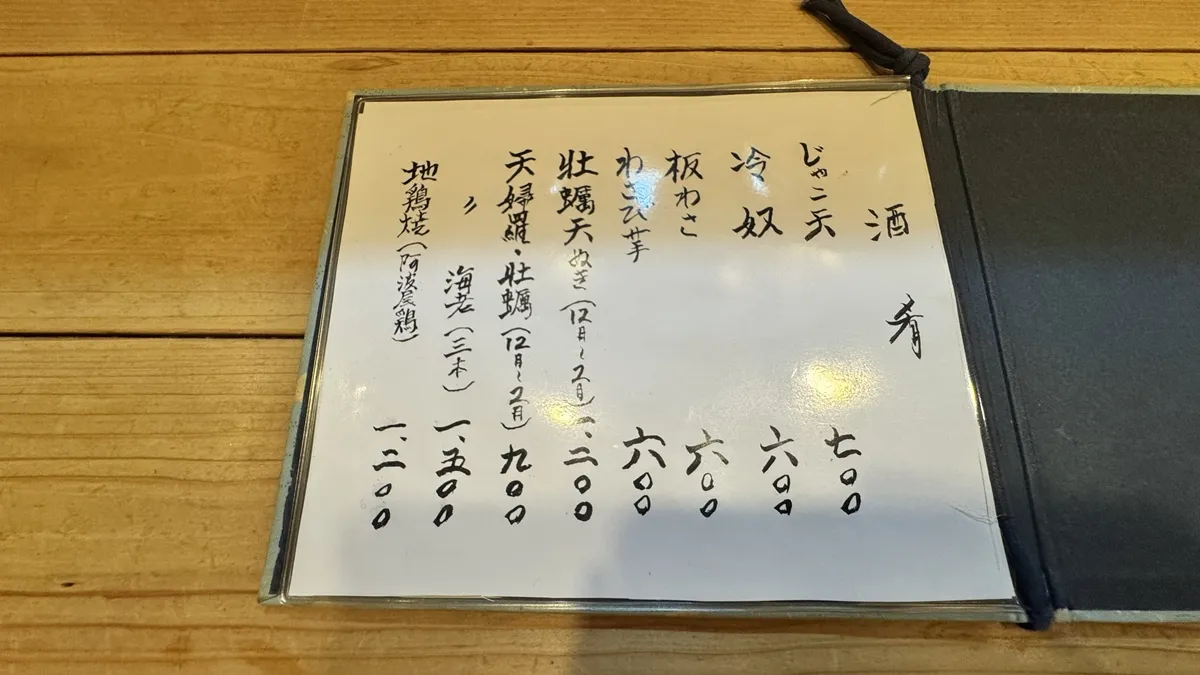 酒肴
じゃこ天 七〇〇
冷奴 六〇〇
板わさ 六〇〇
わさび芋 六〇〇
牡蠣天ぬき(12月~2月) 一、二〇〇
天婦羅・牡蠣(12月~2月) 九〇〇
〃 海老(三本) 一、五〇〇
地鶏焼(阿波尾鶏) 一、二〇〇